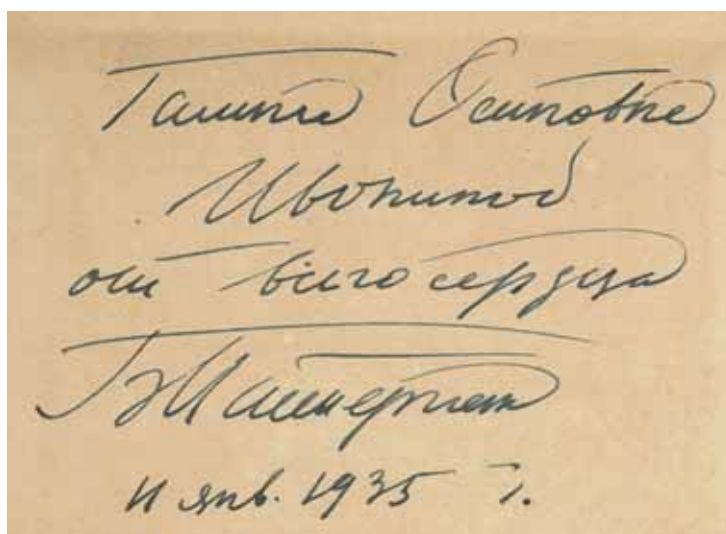 Галине Осиповне
Ивониной
от всего сердца
Б Пастернак
11 янв. 1935 г.